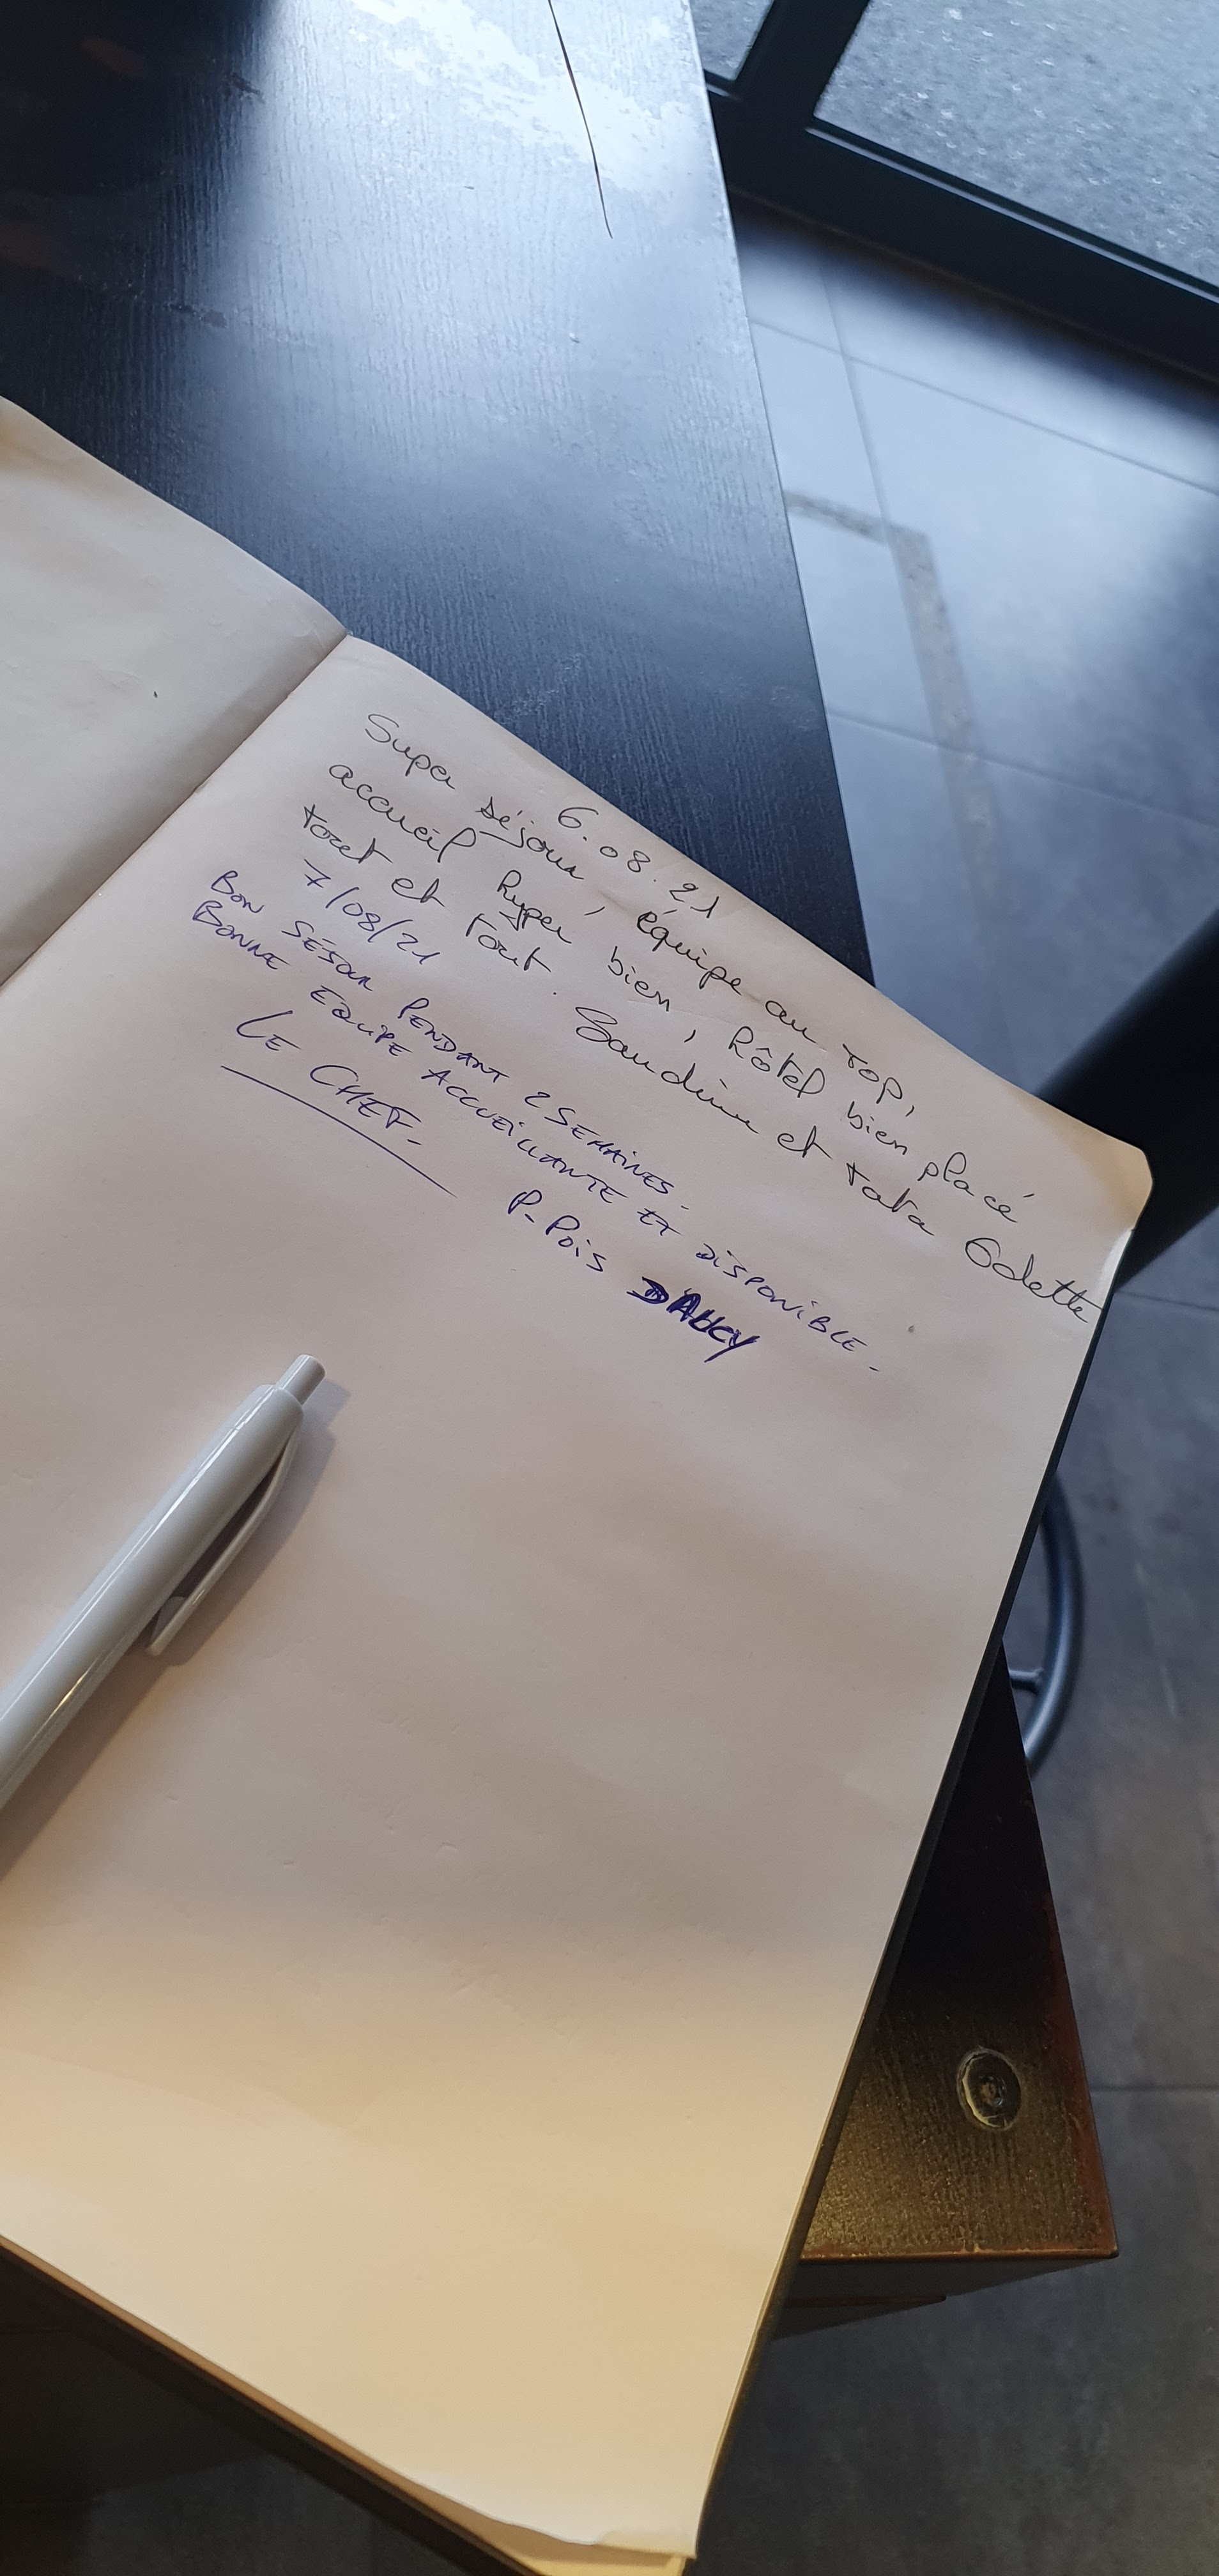 6.08.21
Super séjour, équipe au top,
accueil hyper bien, hôtel bien placé
tout et tout. Sandrine et tata Odette
7/08/21
BON SÉJOUR PENDANT 2 SEMAINES.
BONNE EQUIPE ACCUEILLANTE ET DISPONIBLE.
LE CHEF. P-POIS DAUCY